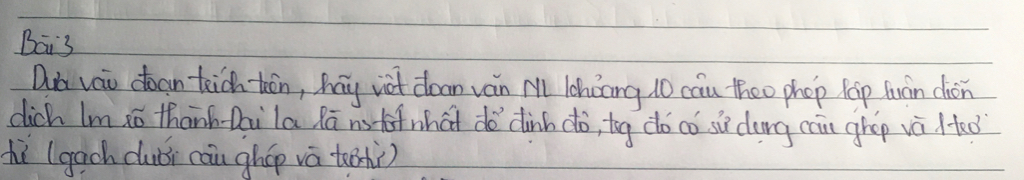 Bài 3
Dựa vào đoạn trích trên, hãy viết đoạn văn NL khoảng 10 câu theo phép lập luận diễn
dịch lm rõ thành Đại la là nơi tốt nhất để định đô, tg đó có sử dụng câu ghép và 1 trợ
từ (gạch dưới câu ghép và trợ từ)